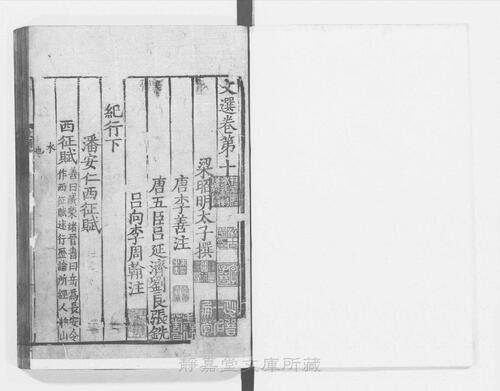 文選卷第十
梁昭明太子撰
唐李善注
唐五臣呂延濟劉良張銑
呂向李周翰注
紀行下
潘安仁西征賦
西征賦
善曰臧榮緒晉書曰岳爲長安令
作西征賦述行歷論所經人物山
水也
靜嘉堂文庫所藏